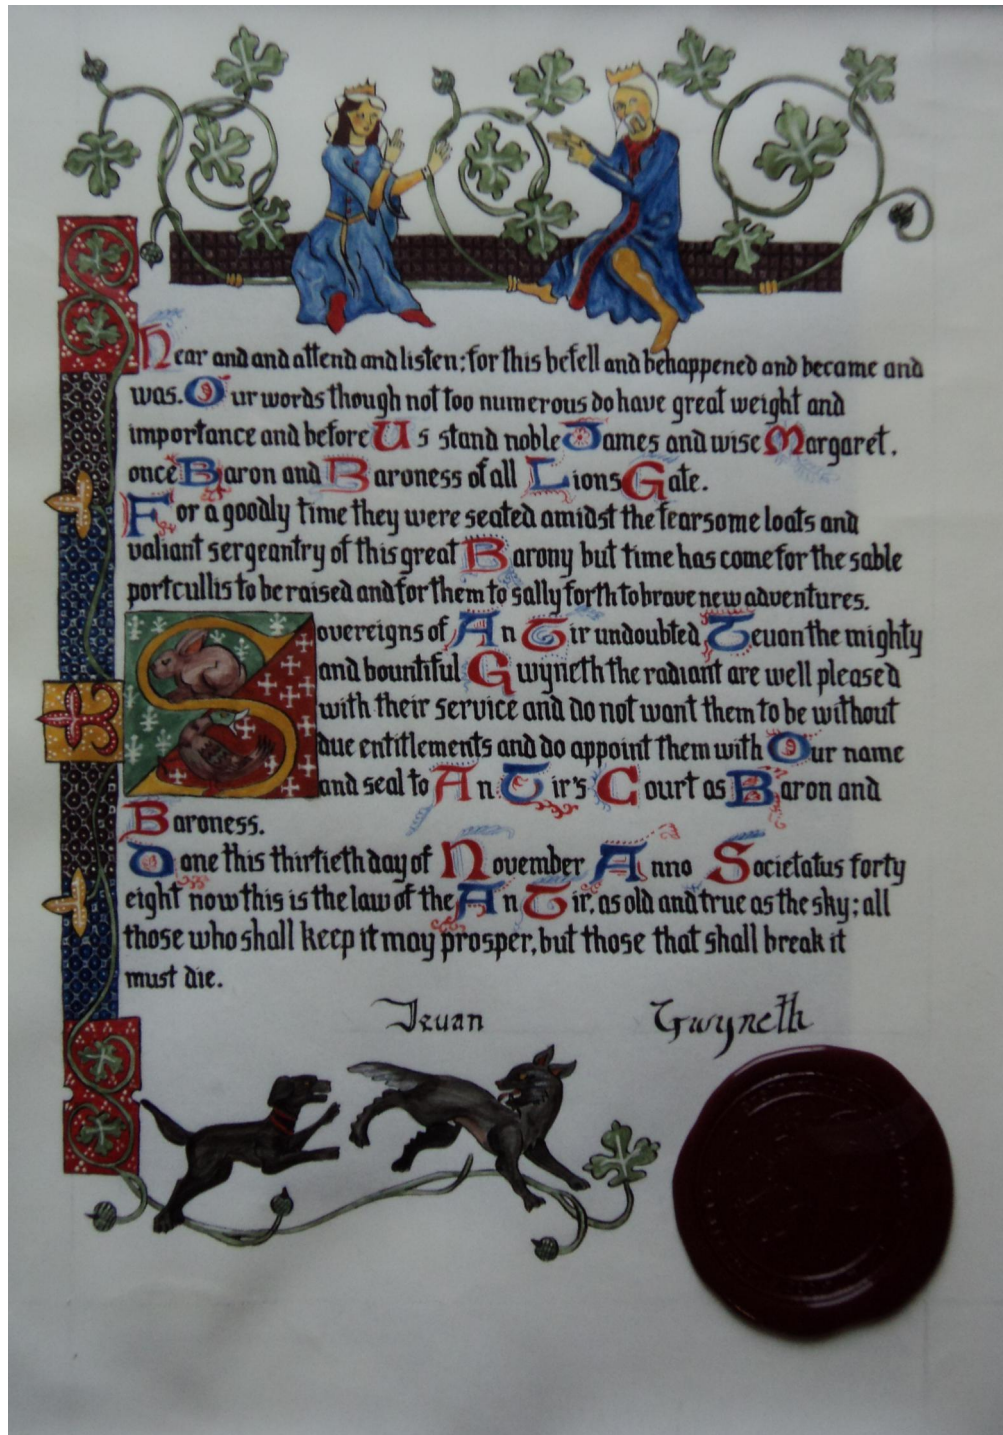 Hear and and attend and listen: for this befell and behappened and became and
was. Our words though not too numerous do have great weight and
importance and before Us stand noble James and wise Margaret,
once Baron and Baroness of all Lions Gate.
For a goodly time they were seated amidst the fearsome loats and
valiant sergeantry of this great Barony but time has come for the sable
portcullis to be raised and for them to sally forth to brave new adventures.
Sovereigns of An Tir undoubted Ieuan the mighty
and bountiful Gwyneth the radiant are well pleased
with their service and do not want them to be without
due entitlements and do appoint them with Our name
and seal to An Tir's Court as Baron and
Baroness.
Done this thirtieth day of November Anno Societatus forty
eight now this is the law of the An Tir, as old and true as the sky; all
those who shall keep it may prosper, but those that shall break it
must die.
Ieuan Gwyneth